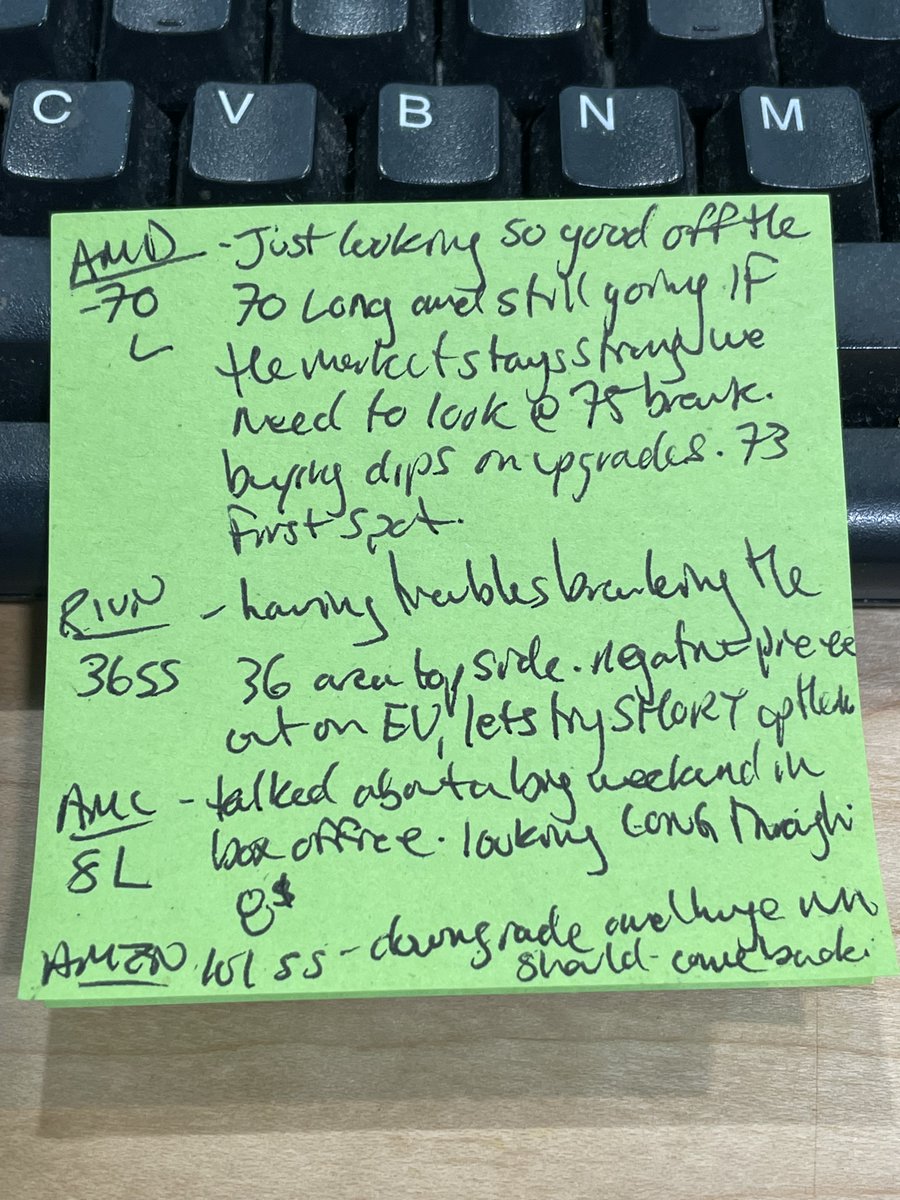 C V B N M
AMD - Just looking so good off the
-70 70 Long and still going. IF
L the market stays strong we
need to look @ 75 break.
buying dips on upgrades. 73
first spot.
RIVN - having troubles breaking the
36SS 36 area top side. negative piece
out on EV, lets try SHORT up there
AMC - talked about a big weekend in
8L box office. looking LONG through
8$
AMZN SS - downgrade and huge run
should come back